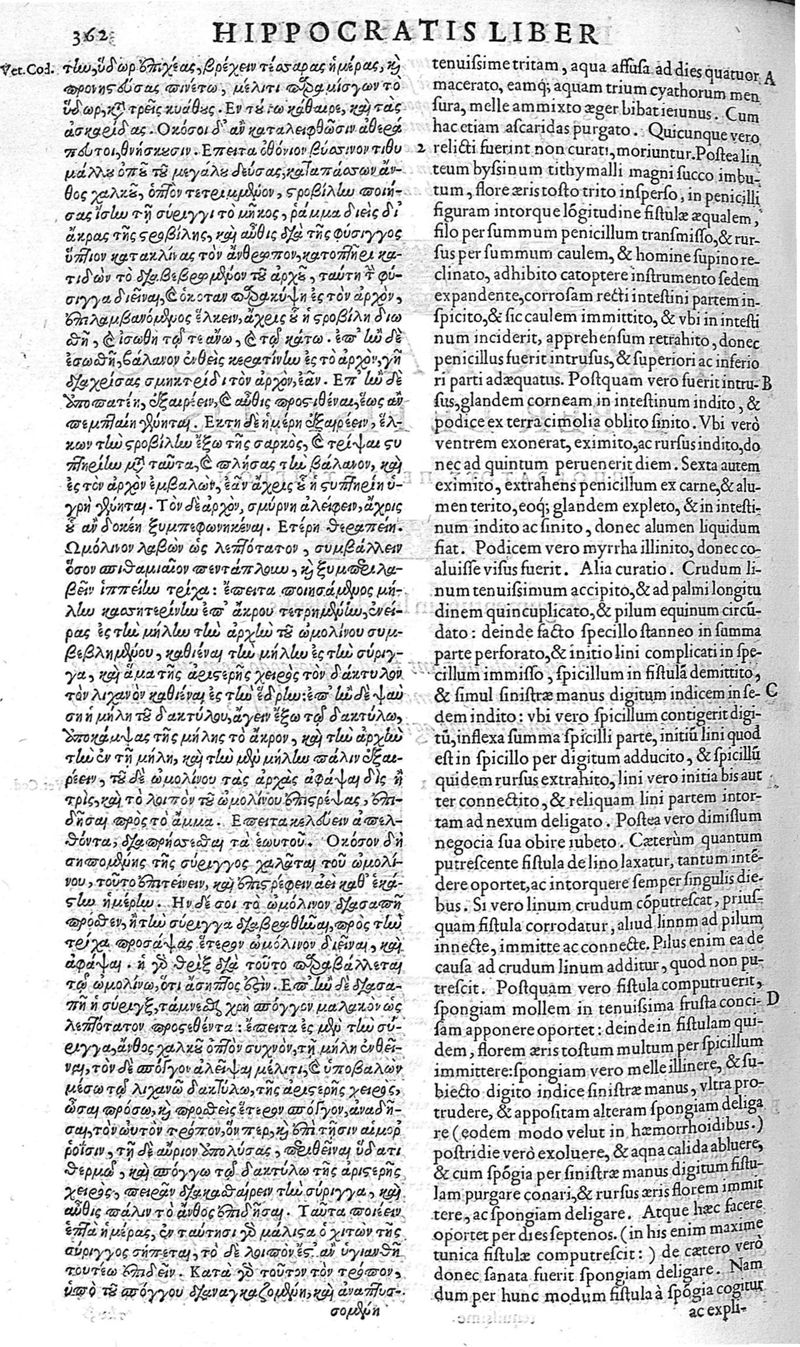 362
HIPPOCRATIS LIBER
Vet. Cod.
τὴν, ὕδωρ ἐπιχέας, βρέχειν τέσσαρας ἡμέρας, καὶ
προνηστεύσας πινέτω, μέλιτι παραμίσγων τὸ
ὕδωρ, κατὰ τρεῖς κυάθους. Εν τούτῳ κάθαιρε, καὶ τὰς
ἀσκαρίδας. Οκόσοι δ' ἂν καταλειφθῶσιν ἀθερά
πευτοι, θνήσκουσιν. Επειτα ὀθόνιον βύσσινον τιθυ
μάλλου ὀπῷ τοῦ μεγάλου δεύσας, καταπάσσων ἄν-
θος χαλκοῦ, ὀπτὸν τετριμμένον, στροβίλῳ ποιή-
σας ἴσῳ τῇ σύριγγι τὸ μῆκος, ῥάμμα διεὶς δι'
ἄκρας τῆς στροβίλης, καὶ αὖθις διὰ τῆς φύσιγγος
ὕπτιον κατακλίνας τὸν ἄνθρωπον, κατοπτῆρι κα-
τιδὼν τὸ διαβεβρωμένον τοῦ ἀρχοῦ, ταύτῃ τὴν φύ-
σιγγα διεῖναι, καὶ ὁκόταν παρακύψῃ ἐς τὸν ἀρχὸν,
ἐπιλαμβανόμενος ἕλκειν, ἄχρις οὗ ἡ στροβίλη διω
θῇ, καὶ ἰσωθῇ τῷ τε ἄνω, καὶ τῷ κάτω. ἐπὴν δὲ
ἐσωθῇ, βάλανον ἐνθεὶς κερατίνην ἐς τὸ ἀρχὸν, γῇ
διαχρίσας σμηκτρίδι τὸν ἀρχὸν, ἐᾶν. Επὴν δὲ
ἀποπατέῃ, ἐξαιρέειν, καὶ αὖθις προστιθέναι, ἕως ἂν
πεμπταίη γένηται. Εκτῃ δὲ ἡμέρῃ ἐξαιρέειν, ἕλ-
κων τὴν στροβίλην ἔξω τῆς σαρκὸς, καὶ τρίψαι στυ
πτηρίην μετὰ ταῦτα, καὶ πλήσας τὴν βάλανον, καὶ
ἐς τὸν ἀρχὸν ἐμβαλὼν, ἐᾶν ἄχρις οὗ ἡ στυπτηρίη ὑ-
γρὴ γένηται. Τὸν δὲ ἀρχὸν, σμύρνῃ ἀλείφειν, ἄχρις
οὗ ἂν δοκέῃ ξυμπεφωνηκέναι. Ετέρη θεραπείη.
Ωμόλινον λαβὼν ὡς λεπτότατον, συμβάλλειν
ὅσον σπιθαμιαῖον πεντάπλουν, καὶ ξυμπεριλα-
βεῖν ἱππείην τρίχα: ἔπειτα ποιησάμενος μή-
λην κασσιτερίνην ἐπ' ἄκρου τετρημένην, ἐνεί-
ρας ἐς τὴν μήλην τὴν ἀρχὴν τοῦ ὠμολίνου συμ-
βεβλημένου, καθιέναι τὴν μήλην ἐς τὴν σύριγ-
γα, καὶ ἅμα τῆς ἀριστερῆς χειρὸς τὸν δάκτυλον
τὸν λιχανὸν καθιέναι ἐς τὴν ἕδρην: ἐπὴν δὲ ψαύ
σῃ ἡ μήλη τοῦ δακτύλου, ἄγειν ἔξω τῷ δακτύλῳ,
ἀποκάμψας τῆς μήλης τὸ ἄκρον, καὶ τὴν ἀρχὴν
τὴν ἐν τῇ μήλῃ, καὶ τὴν μὲν μήλην πάλιν ἐξαι-
ρέειν, τοῦ δὲ ὠμολίνου τὰς ἀρχὰς ἀφάψαι δὶς ἢ
τρὶς, καὶ τὸ λοιπὸν τοῦ ὠμολίνου ἐπιστρέψας, ἐπι-
δῆσαι πρὸς τὸ ἅμμα. Επειτα κελεύειν ἀπελ-
θόντα, διαπρήσσεσθαι τὰ ἑωυτοῦ. Οκόσον δὴ
σηπομένης τῆς σύριγγος χαλᾶται τοῦ ὠμολί-
νου, τοῦτο ἐπιτείνειν, καὶ ἐπιστρέφειν ἀεὶ καθ' ἑκά-
στην ἡμέρην. Ην δέ σοι τὸ ὠμόλινον διασαπῇ
πρόσθεν, ἢ τὴν σύριγγα διαβρωθῆναι, πρὸς τὴν
τρίχα προσάψας ἕτερον ὠμόλινον διεῖναι, καὶ
ἀφάψαι. ἡ γὰρ θρὶξ διὰ τοῦτο παραβάλλεται
τῷ ὠμολίνῳ, ὅτι ἄσηπτός ἐστιν. Επὴν δὲ διασα-
πῇ ἡ σύριγξ, τάμνειν χρὴ σπόγγον μαλακὸν ὡς
λεπτότατον προστεθέντα: ἔπειτα ἐς μὲν τὴν σύ-
ριγγα, ἄνθος χαλκοῦ ὀπτὸν συχνὸν, τῇ μήλῃ ἐνθεῖ-
ναι, τὸν δὲ σπόγγον ἀλείψαι μέλιτι, καὶ ὑποβαλὼν
μέσῳ τῷ λιχανῷ δακτύλῳ, τῆς ἀριστερῆς χειρὸς,
ὦσαι πρόσω, καὶ προσθεὶς ἕτερον σπόγγον, ἀναδῆ-
σαι, τὸν ωὐτὸν τρόπον, ὅνπερ, καὶ ἐπὶ τῇσιν αἱμοῤ-
ῥοΐσιν, τῇ δὲ αὔριον ἀπολύσας, περιθεῖναι ὕδατι
θερμῷ, καὶ σπόγγῳ τῷ δακτύλῳ τῆς ἀριστερῆς
χειρὸς, πειρᾶν διακαθαίρειν τὴν σύριγγα, καὶ
αὖθις πάλιν τὸ ἄνθος ἐπιδῆσαι. Ταῦτα ποιέειν
ἑπτὰ ἡμέρας, ἐν ταύτῃσι γὰρ μάλιστα ὁ χιτὼν τῆς
σύριγγος σήπεται, τὸ δὲ λοιπὸν ἔστ' ἂν ὑγιανθῇ
τουτέῳ ἐπιδεῖν. Κατὰ γὰρ τοῦτον τὸν τρόπον,
ὑπὸ τοῦ σπόγγου διαναγκαζομένη, καὶ ἀναπτυσ-
σομένη
tenuissime tritam, aqua affusa ad dies quatuor A
macerato, eamq; aquam trium cyathorum men
sura, melle ammixto æger bibat ieiunus. Cum
hac etiam ascaridas purgato. Quicunque vero
2 relicti fuerint non curati, moriuntur. Postea lin
teum byssinum tithymalli magni succo imbu-
tum, flore æris tosto trito insperso, in penicilli
figuram intorque lōgitudine fistulæ æqualem,
filo per summum penicillum transmisso, & rur-
sus per summum caulem, & homine supino re-
clinato, adhibito catoptere instrumento sedem
expandente, corrosam recti intestini partem in-
spicito, & sic caulem immittito, & vbi in intesti
num inciderit, apprehensum retrahito, donec
penicillus fuerit intrusus, & superiori ac inferio
ri parti adæquatus. Postquam vero fuerit intru- B
sus, glandem corneam in intestinum indito, &
podice ex terra cimolia oblito sinito. Vbi verò
ventrem exonerat, eximito, ac rursus indito, do
nec ad quintum peruenerit diem. Sexta autem
eximito, extrahens penicillum ex carne, & alu-
men terito, eoq; glandem expleto, & in intesti-
num indito ac sinito, donec alumen liquidum
fiat. Podicem vero myrrha illinito, donec co-
aluisse visus fuerit. Alia curatio. Crudum li-
num tenuissimum accipito, & ad palmi longitu
dinem quintuplicato, & pilum equinum circū-
dato: deinde facto specillo stanneo in summa
parte perforato, & initio lini complicati in spe-
cillum immisso, spicillum in fistulā demittito,
& simul sinistræ manus digitum indicem in se- C
dem indito: vbi vero spicillum contigerit digi-
tū, inflexa summa spicilli parte, initiū lini quod
est in spicillo per digitum adducito, & spicillū
quidem rursus extrahito, lini vero initia bis aut
ter connectito, & reliquam lini partem intor-
tam ad nexum deligato. Postea vero dimissum
negocia sua obire iubeto. Cæterùm quantum
putrescente fistula de lino laxatur, tantum intē-
dere oportet, ac intorquere semper singulis die-
bus. Si vero linum crudum cōputrescat, prius-
quam fistula corrodatur, aliud linnm ad pilum
innecte, immitte ac connecte. Pilus enim ea de
causa ad crudum linum additur, quod non pu-
trescit. Postquam vero fistula computruerit,
spongiam mollem in tenuissima frusta conci- D
sam apponere oportet: deinde in fistulam qui-
dem, florem æris tostum multum per spicillum
immittere: spongiam vero melle illinere, & su-
biecto digito indice sinistræ manus, vltra pro-
trudere, & appositam alteram spongiam deliga
re (eodem modo velut in hæmorrhoidibus.)
postridie verò exoluere, & aqna calida abluere,
& cum spōgia per sinistræ manus digitum fistu-
lam purgare conari, & rursus æris florem immit
tere, ac spongiam deligare. Atque hæc facere
oportet per dies septenos. (in his enim maxime
tunica fistulæ computrescit:) de cætero verò
donec sanata fuerit spongiam deligare. Nam
dum per hunc modum fistula à spōgia cogitur
ac expli-